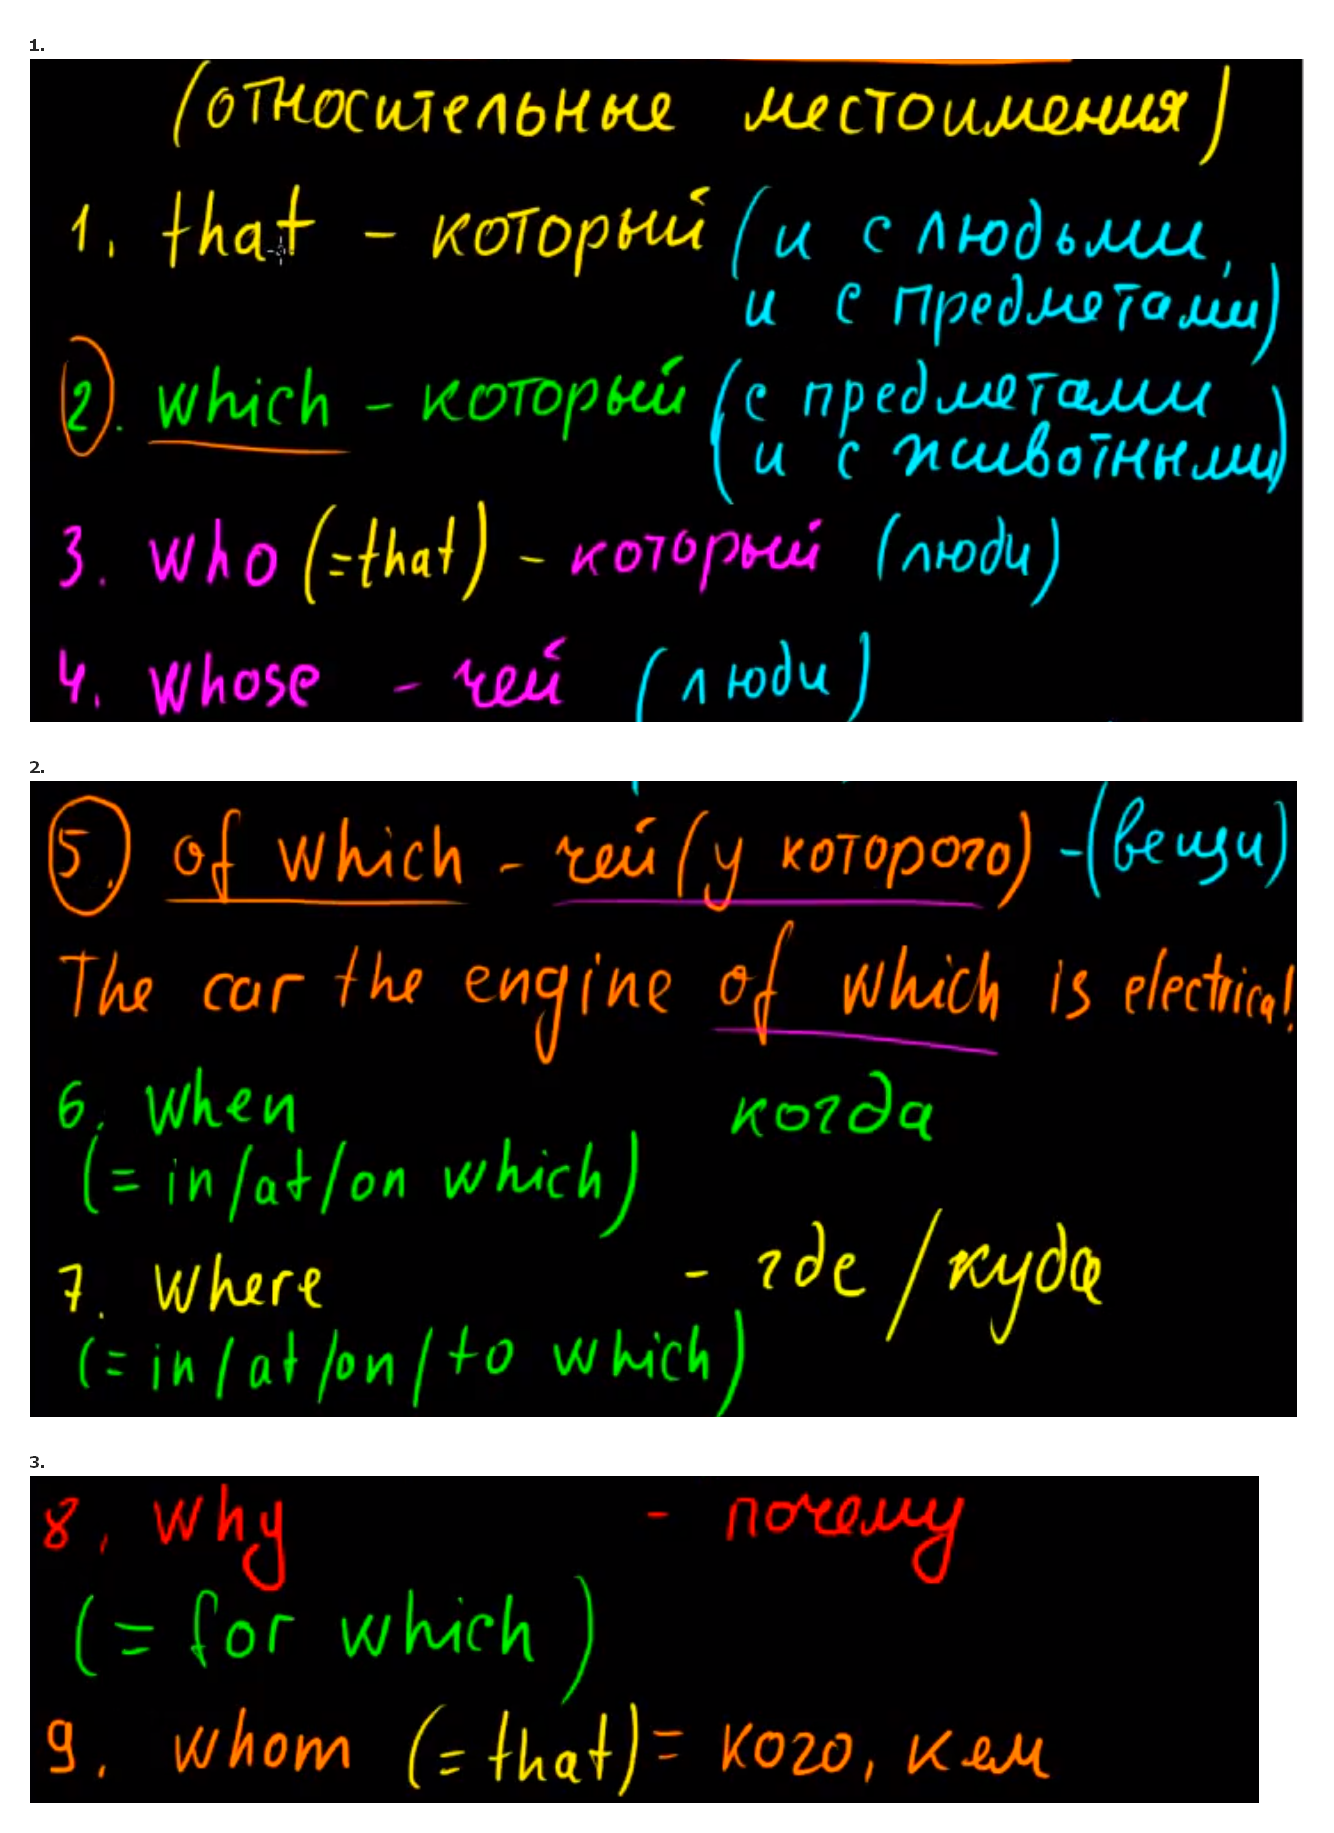 1.
(относительные местоимения)
1. that - который (и с людьми,
и с предметами)
2. which - который (с предметами
и с животными)
3. who (=that) - который (люди)
4. whose - чей (люди)
2.
5. of which - чей (у которого) - (вещи)
The car the engine of which is electrical!
6. when когда
(= in/at/on which)
7. where - где / куда
(= in/at/on/to which)
3.
8. why - почему
(= for which)
9. whom (=that) = кого, кем